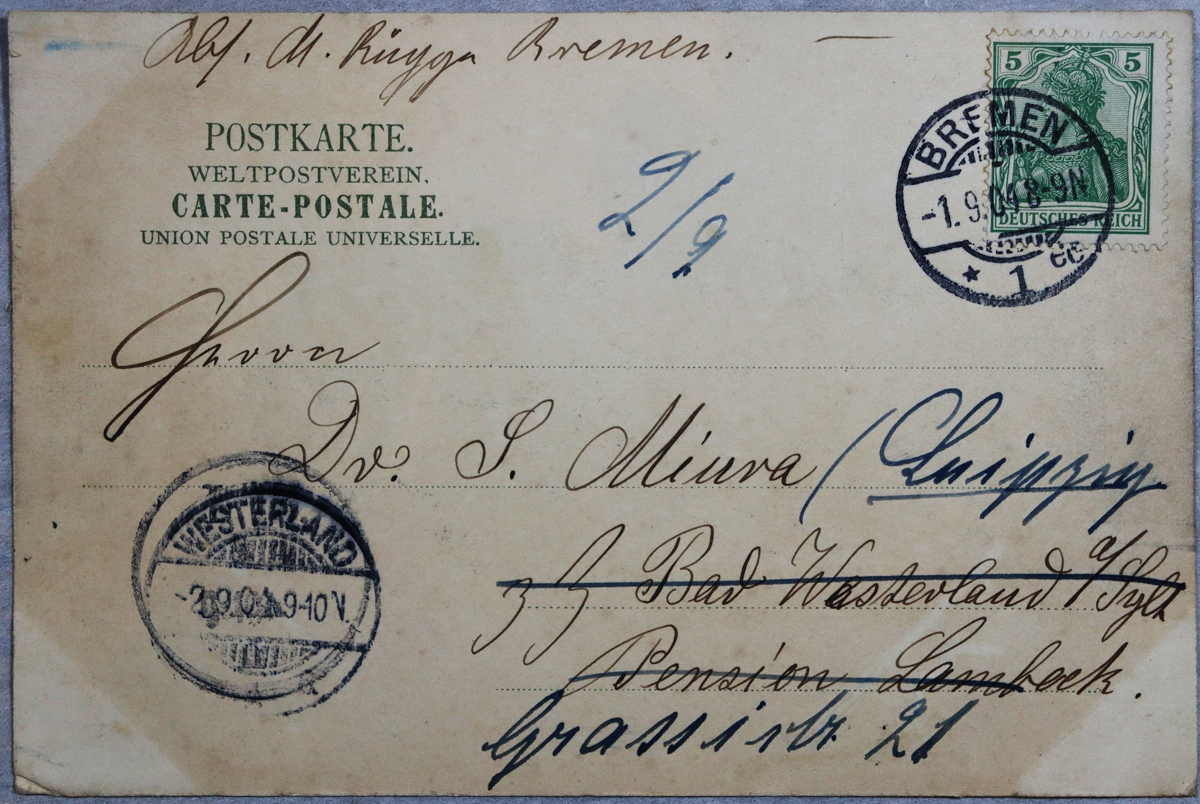 Abs. M. Rügge Bremen.
5 5
DEUTSCHES REICH
BREMEN
-1.9.04.8-9N
* 1 cc
POSTKARTE.
WELTPOSTVEREIN.
CARTE-POSTALE.
UNION POSTALE UNIVERSELLE.
2/9
Herrn
Dr. S. Miura (Leipzig
zZ Bad Westerland a/Sylt
Pension Lambeck.
Grassistr. 21
WESTERLAND
-2.9.04.9-10V.